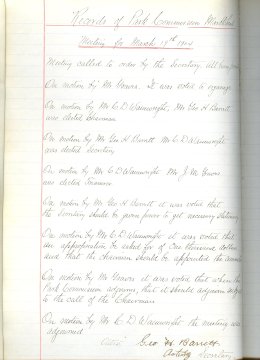 Records of Park Commission Meetings
Meeting for March 19th 1904
Meeting called to order by the Secretary. All being present
On motion by Mr Graves. It was voted to organize
On motion by Mr C D Wainwright, Mr Geo H Barrett
was elected Chairman
On motion by Mr Geo H Barrett Mr C D Wainwright
was elected Secretary
On motion by Mr C D Wainwright Mr J M Graves
was elected Treasurer
On motion by Mr Geo H Barrett it was voted that
the Secretary should be given power to get necessary
On motion by Mr C D Wainwright it was voted that
an appropriation be asked for of One thousand dollars
and that the chairman should be appointed the
On motion by Mr Graves it was voted that when the
Park Commission adjourns, that it should adjourn subject
to the call of the Chairman
On motion by Mr C D Wainwright the meeting was
adjourned.
Geo H Barrett
Secretary